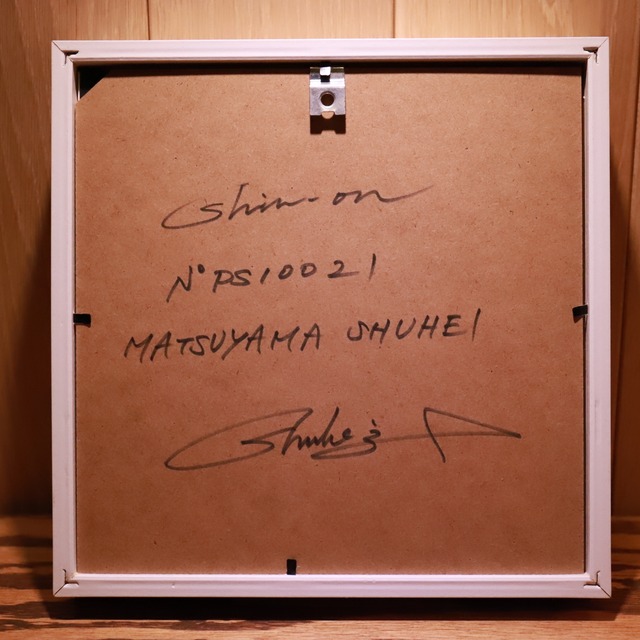 shin-on
N° PS10021
MATSUYAMA SHUHEI
Shuhei